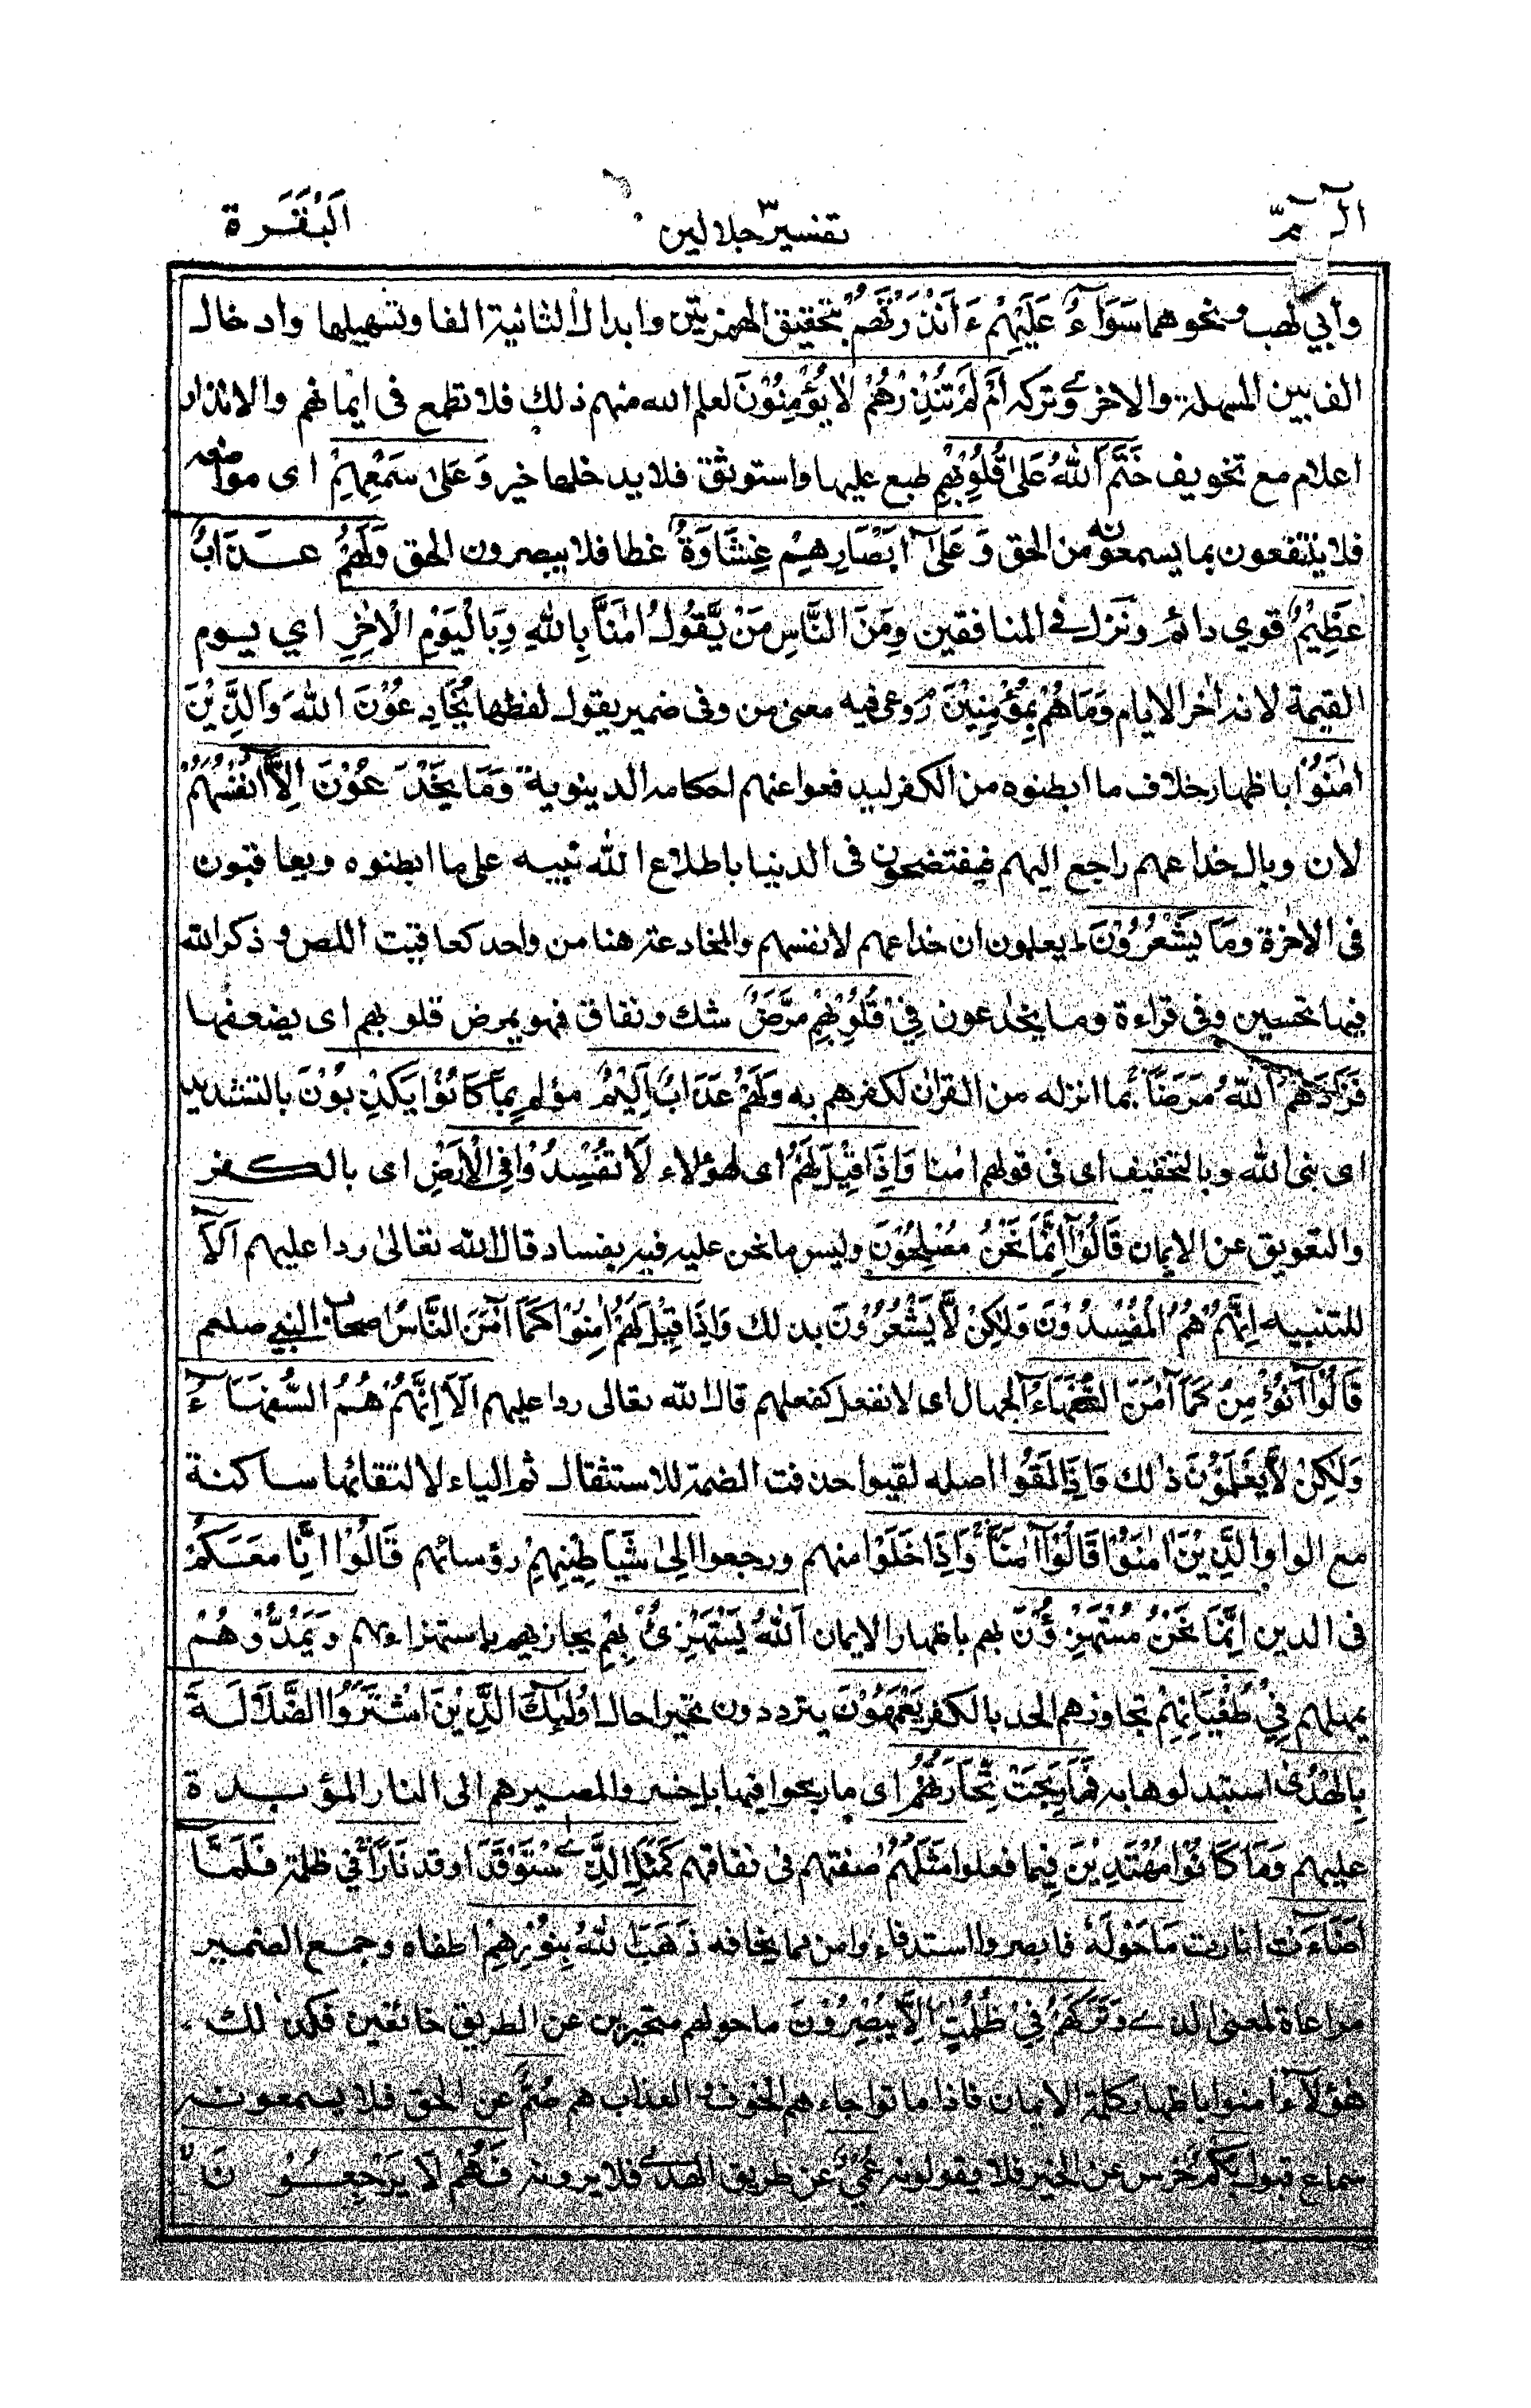 الٓمّٓ تفسير جلالين ٣ اَلْبَقَرَة
وأبي لهب ونحوهما سَوَآءٌ عَلَيْهِمْ ءَاَنْذَرْتَهُمْ بتحقيق الهمزيتين وابدال الثانية الفا وتسهيلها وادخال
الف بين المسهلة والاخرى وتركه اَمْ لَمْ تُنْذِرْهُمْ لَا يُؤْمِنُوْنَ لعلم الله منهم ذلك فلا تطمع فى ايمانهم والانذار
اعلام مع تخويف خَتَمَ اَللّٰهُ عَلٰى قُلُوْبِهِمْ طبع عليها واستوثق فلا يدخلها خير وَعَلٰى سَمْعِهِمْ اى مواضعه
فلا ينتفعون بما يسمعونه من الحق وَعَلٰٓى اَبْصَارِهِمْ غِشَاوَةٌ غطا فلا يبصرون الحق وَلَهُمْ عَذَابٌ
عَظِيْمٌ قوي دائم ونزل فى المنافقين وَمِنَ النَّاسِ مَنْ يَّقُوْلُ اٰمَنَّا بِاللّٰهِ وَبِالْيَوْمِ الْاٰخِرِ اي يوم
القيمة لانه اٰخر الايام وَمَا هُمْ بِمُؤْمِنِيْنَ رُوعى فيه معنى من وفى ضمير يقول لفظها يُخَادِعُوْنَ اللّٰهَ وَالَّذِيْنَ
اٰمَنُوْا باظهار خلاف ما ابطنوه من الكفر ليدفعوا عنهم احكامه الدينوية وَمَا يَخْدَعُوْنَ اِلَّآ اَنْفُسَهُمْ
لان وبال خداعهم راجع اليهم فيفتضحون فى الدنيا باطلاع الله نبيه على ما ابطنوه ويعاقبون
فى الاٰخرة وَمَا يَشْعُرُوْنَ يعلمون ان خداعهم لانفسهم والمخادعة هنا من واحد كعاقبت اللص وذكر الله
فيها تحسين وفى قراءة وما يخدعون فِيْ قُلُوْبِهِمْ مَّرَضٌ شك ونفاق فهو يمرض قلوبهم اى يضعفها
فَزَادَهُمُ اَللّٰهُ مَرَضًا بما انزله من القراٰن لكفرهم به وَلَهُمْ عَذَابٌ اَلِيْمٌ مؤلم بِمَا كَانُوْا يَكْذِبُوْنَ بالتشديد
اى نبى الله وبالتخفيف اى فى قولهم اٰمنا وَاِذَا قِيْلَ لَهُمْ اى لهؤلاء لَا تُفْسِدُوْا فِى الْاَرْضِ اى بالكفر
والتعويق عن الايمان قَالُوْآ اِنَّمَا نَحْنُ مُصْلِحُوْنَ وليس ما نحن عليه فيه بفساد قال الله تعالىٰ ردا عليهم اَلَآ
للتنبيه اِنَّهُمْ هُمُ الْمُفْسِدُوْنَ وَلٰكِنْ لَّا يَشْعُرُوْنَ بذلك وَاِذَا قِيْلَ لَهُمْ اٰمِنُوْا كَمَآ اٰمَنَ النَّاسُ اصحاب النبي صلعم
قَالُوْٓا اَنُؤْمِنُ كَمَآ اٰمَنَ السُّفَهَآءُ الجهال اى لا نفعل كفعلهم قال الله تعالى ردا عليهم اَلَآ اِنَّهُمْ هُمُ السُّفَهَآءُ
وَلٰكِنْ لَّا يَعْلَمُوْنَ ذٰلك وَاِذَا لَقُوا اصله لقيوا حذفت الضمة للاستثقال ثم الياء لالتقائها ساكنة
مع الواو الَّذِيْنَ اٰمَنُوْا قَالُوْٓا اٰمَنَّا وَاِذَا خَلَوْا منهم ورجعوا اِلىٰ شَيَاطِيْنِهِمْ رؤسائهم قَالُوْٓا اِنَّا مَعَكُمْ
فى الدين اِنَّمَا نَحْنُ مُسْتَهْزِءُوْنَ بهم باظهار الايمان اَللّٰهُ يَسْتَهْزِئُ بِهِمْ يجازيهم باستهزاءهم وَيَمُدُّهُمْ
يمهلهم فِيْ طُغْيَانِهِمْ تجاوزهم الحد بالكفر يَعْمَهُوْنَ يترددون تحيرا حال اُولٰٓئِكَ الَّذِيْنَ اشْتَرَوُا الضَّلَالَةَ
بِالْهُدٰى استبدلوها به فَمَا رَبِحَتْ تِّجَارَتُهُمْ اى ما ربحوا فيها بل خسروا لمصيرهم الى النار المؤبدة
عليهم وَمَا كَانُوْا مُهْتَدِيْنَ فيما فعلوا مَثَلُهُمْ صفتهم فى نفاقهم كَمَثَلِ الَّذِى اسْتَوْقَدَ اوقد نَارًا في ظلمة فَلَمَّآ
اَضَآءَتْ انارت مَا حَوْلَهٗ فابصر واستدفاء وامن مما يخافه ذَهَبَ اللّٰهُ بِنُوْرِهِمْ اطفاه وجمع الضمير
مراعاة لمعنى الذى وَتَرَكَهُمْ فِيْ ظُلُمٰتٍ لَّا يُبْصِرُوْنَ ما حولهم متحيرين عن الطريق خائفين فكذلك
هٰؤلآء اٰمنوا باظهار كلمة الايمان فاذا ماتوا جاءهم الخوف والعذاب هم صُمٌّ عن الحق فلا يسمعونه
سماع قبول بُكْمٌ خرس عن الخير فلا يقولونه عُمْيٌ عن طريق الهدى فلا يرونه فَهُمْ لَا يَرْجِعُوْنَ